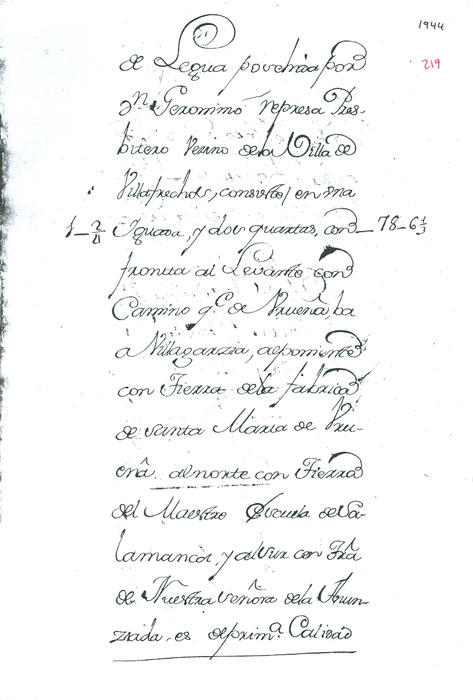 1944
219
de Legua posehida por
Dn. Geronimo represa Pres-
bitero Vecino de la Villa de
Villafrechos, consiste en una
1_2/4 Iguada, y dos quartas, con_ 78_6 1/3
fronta al Levante con
Camino q.e de Urueña, ba
a Villagarzia, al poniente
con Tierra de la fabrica
de santa Maria de Uru-
eña al norte con Tierra
del Maestre Escuela de Sa-
lamanca, y al sur con Trâ
de Nuestra señora de la Anun-
ziada, es de prim.a Calidad